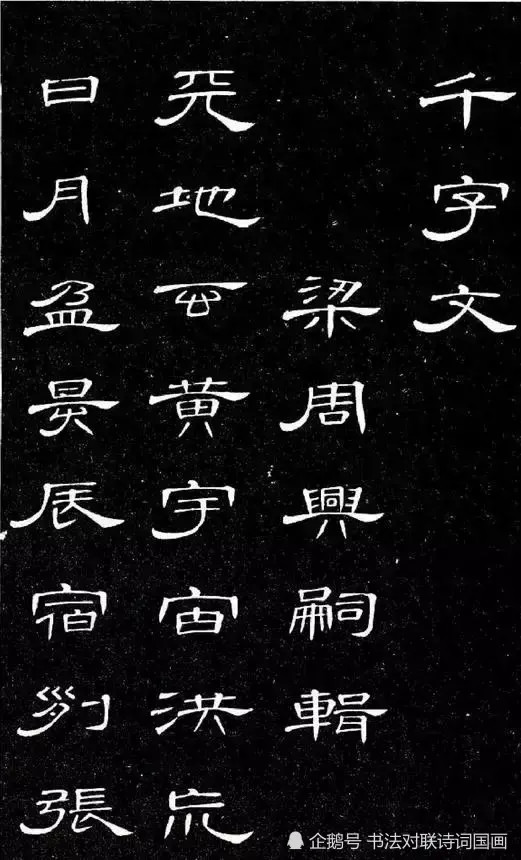 千字文
梁周興嗣輯
天地玄黄宇宙洪荒
日月盈昃辰宿列張
企鹅号 书法对联诗词国画